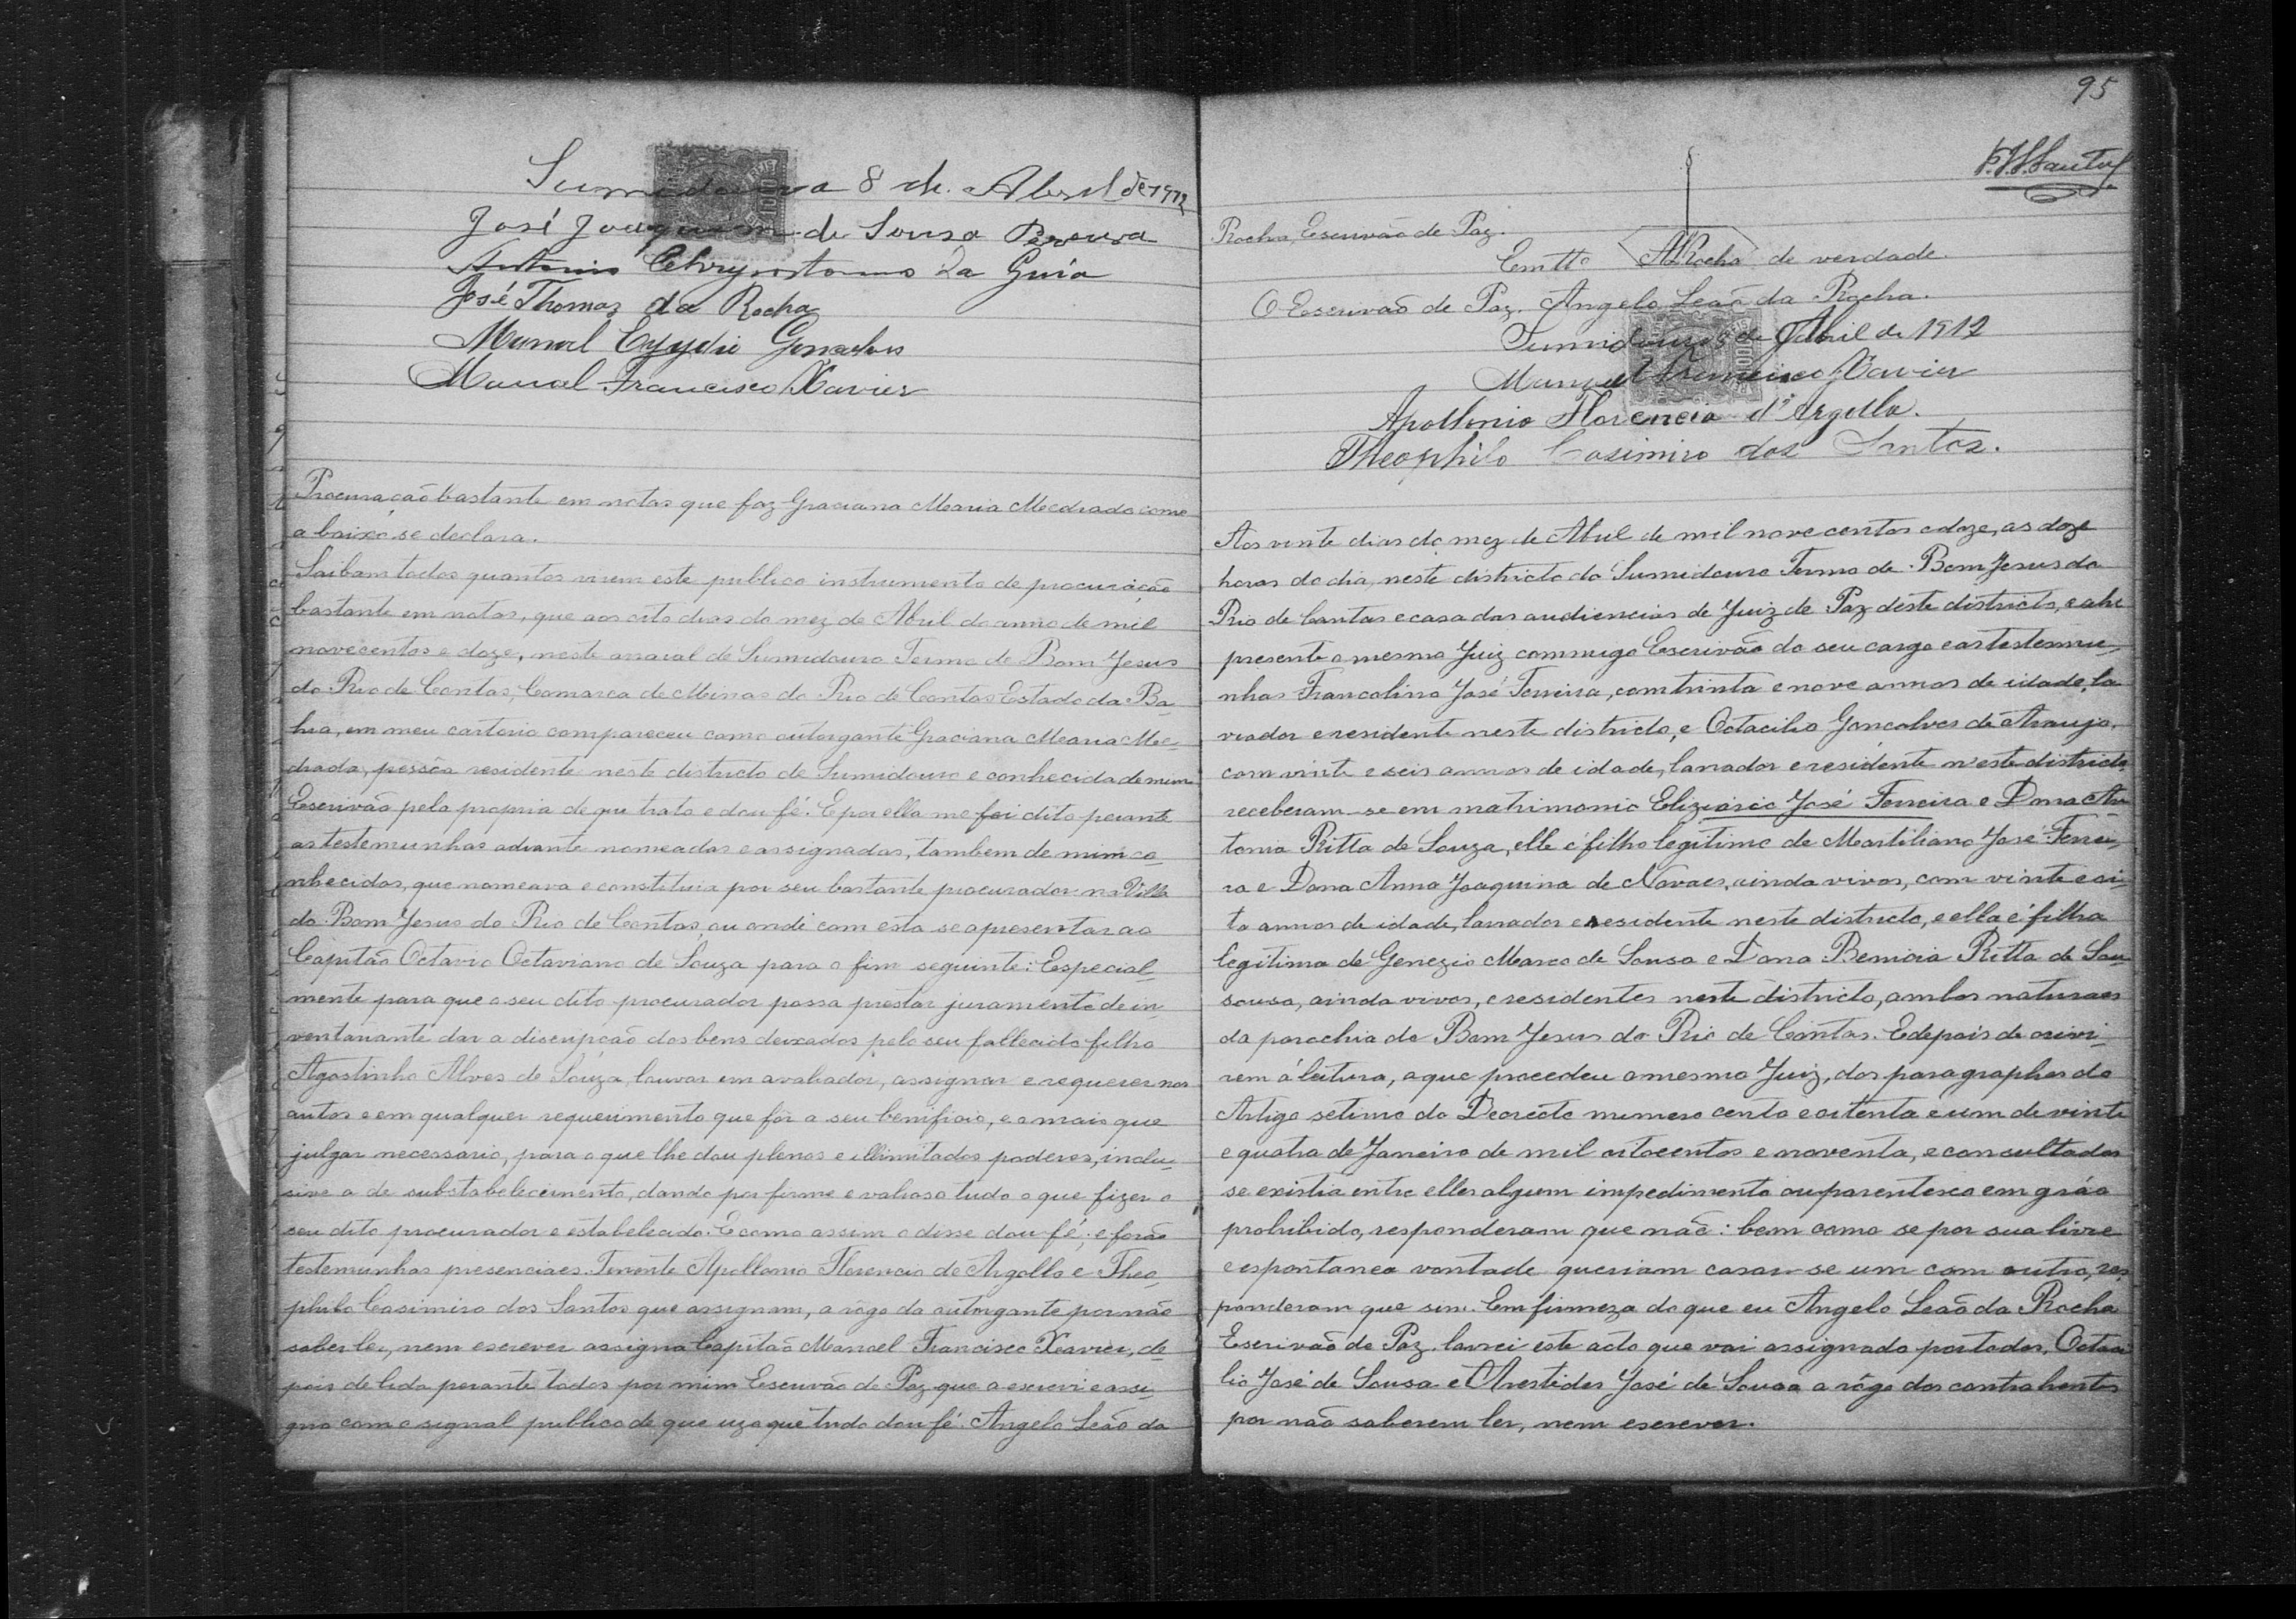 Sumidouro 8 de Abril de 1912
José Joaquim de Sousa Pereira
Antonio Chrysostomo da Guia
José Thomaz da Rocha
Manoel Egydio Gonçalves
Manoel Francisco Xavier
Procuração bastante em notas que faz Graciana Maria Medrado como
a baixo se declara.
Saibam todos quantos virem este publico instrumento de procuração
bastante em notas, que aos oito dias do mez de Abril do anno de mil
novecentos e doze, neste arraial de Sumidouro Termo de Bom Jesus
do Rio de Contas, Comarca de Minas do Rio de Contas Estado da Ba-
hia, em meu cartorio compareceu como outorgante Graciana Maria Me-
drado, pessôa residente neste districto de Sumidouro e conhecida de mim
Escrivão pela propria de que trato e dou fé. E por ella me foi dito perante
as testemunhas adiante nomeadas e assignadas, tambem de mim co-
nhecidas, que nomeava e constituia por seu bastante procurador na Villa
do Bom Jesus do Rio de Contas, ou onde com esta se apresentar ao
Capitão Octavio Octaviano de Souza para o fim seguinte: Especial-
mente para que o seu dito procurador possa prestar juramento de in-
ventariante dar a discripção dos bens deixados pelo seu fallecido filho
Agostinho Alves de Souza, louvar em avaliador, assignar e requerer nos
autos e em qualquer requerimento que for a seu benificio, e o mais que
julgar necessario, para o que lhe dou plenos e illimitados poderes, inclu-
sive o de substabelecimento, dando por firme e valioso tudo o que fizer o
seu dito procurador e estabelecido. E como assim o disse dou fé; e forão
testemunhas presenciaes. Tenente Apollonio Florencio de Argollo e Theo-
philo Casimiro dos Santos que assignam, a rôgo da outorgante por não
saber ler, nem escrever assigna Capitão Manoel Francisco Xavier, de-
pois de lida perante todos por mim Escrivão de Paz que a escrevi e assi-
gno com o signal publico de que uzo que tudo dou fé. Angelo Leão da
95
Rocha, Escrivão de Paz.
Em tto ALRocha de verdade.
O Escrivão de Paz. Angelo Leão da Rocha.
Sumidouro 8 de Abril de 1912
Manoel Francisco Xavier
Apollonio Florencio d'Argollo.
Theophilo Casimiro dos Santos.
Aos vinte dias do mez de Abril de mil nove centos e doze, as doze
horas do dia, neste districto do Sumidouro Termo de Bom Jesus do
Rio de Contas e casa das audiencias de Juiz de Paz deste districto, e ahi
presente o mesmo Juiz commigo Escrivão do seu cargo e as testemu-
nhas Francolino José Ferreira, com trinta e nove annos de idade, la-
vrador e residente neste districto, e Octacilio Gonçalves de Araujo,
com vinte e seis annos de idade, lavrador e residente n'este districto,
receberam-se em matrimonio Eliziario José Ferreira e Dona An-
tonia Ritta de Souza, elle é filho legitimo de Martiliano José Ferrei-
ra e Dona Anna Joaquina de Novaes, ainda vivos, com vinte e oi-
to annos de idade, lavrador e residente neste districto, e ella é filha
legitima de Genezio Marco de Sousa e Dona Ritta de Sou
sousa, ainda vivos, e residentes neste districto, ambos naturaes
da parochia do Bom Jesus do Rio de Contas. E depois de ouvi-
rem á leitura, a que procedeu o mesmo Juiz, dos paragraphos do
Artigo setimo do Decreto numero cento e oitenta e um de vinte
e quatro de Janeiro de mil oitocentos e noventa, e consultados
se existia entre elles algum impedimento ou parentesco em gráo
prohibido, responderam que não: bem como se por sua livre
e espontanea vontade queriam casar-se um com outro, res-
ponderam que sim. Em firmeza do que eu Angelo Leão da Rocha
Escrivão de Paz. lavrei este acto que vai assignado por todos, Octaci
lio José de Sousa e Arestides José de Sousa a rôgo dos contrahentes
por não saberem ler, nem escrever.